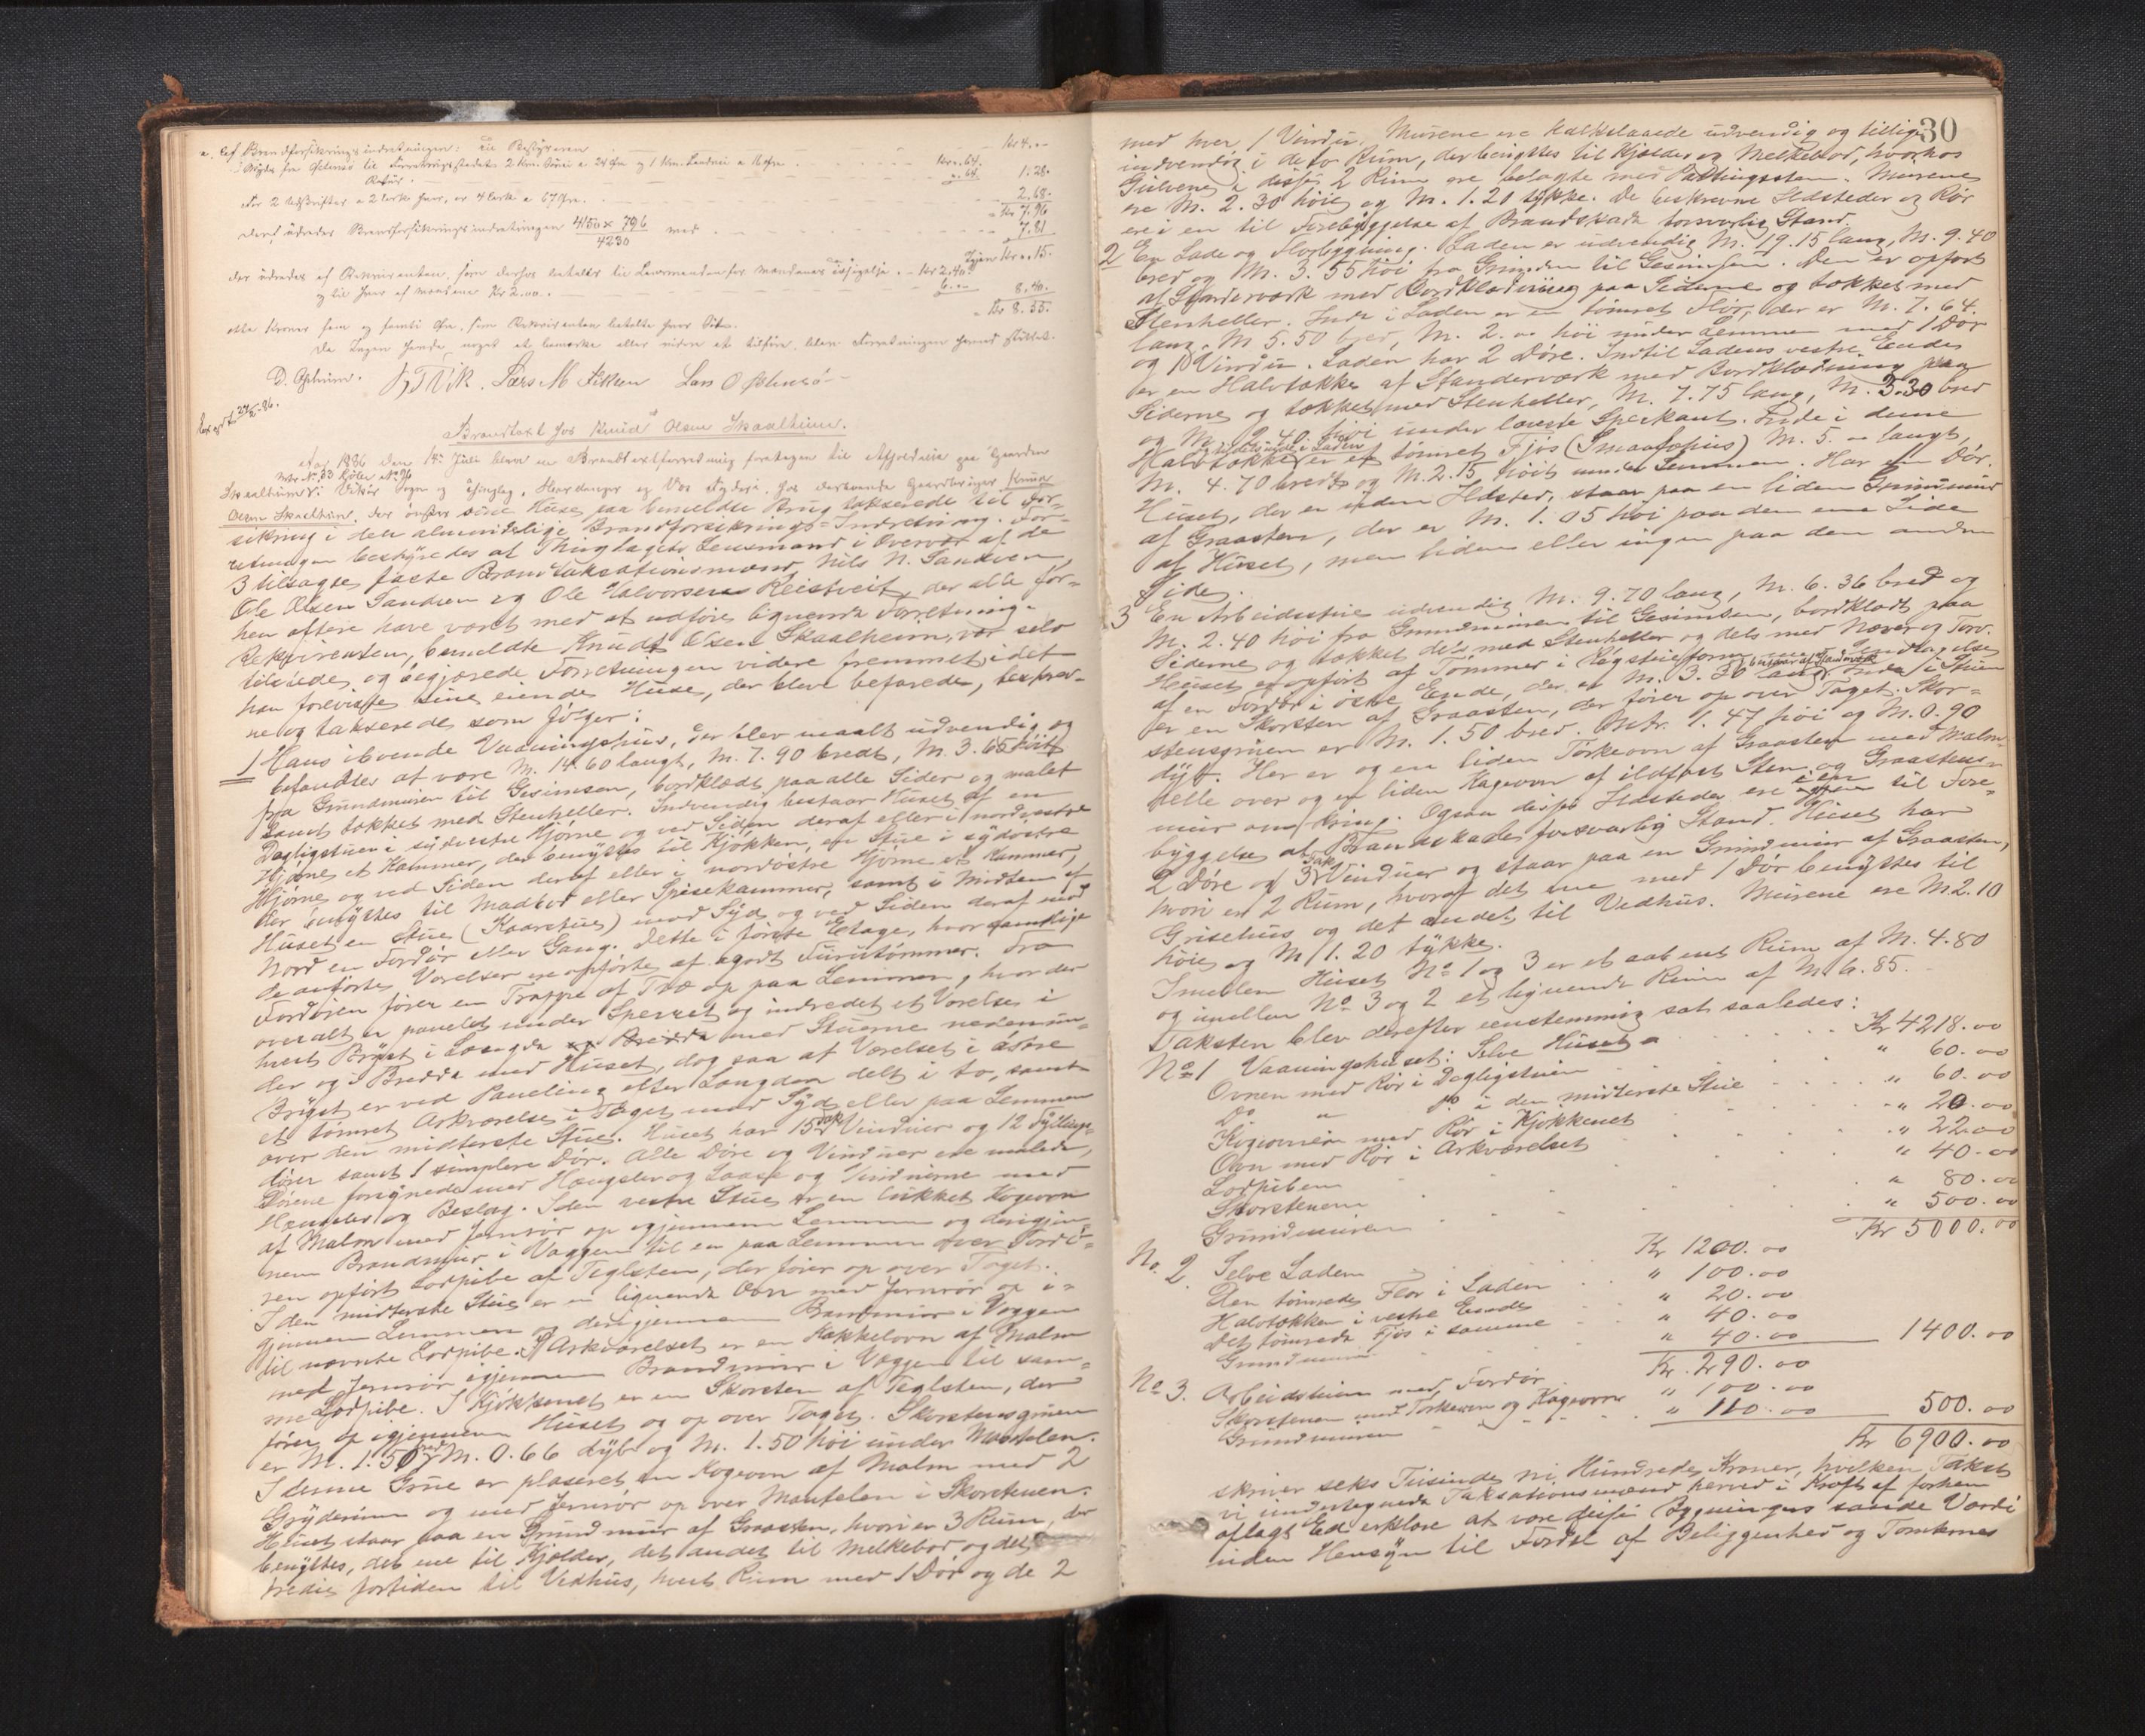 a. Af Brandforsikringsindretningen: til Bestyreren Kr 4. "
i Skyds fra Opheim til Forretningsstedet 2 Km. a 28 Øre og 1 Km. Landvei a 16 Øre Kr. 0.64.
Retur ". 64. 1.28.
For 2 Udskrifter a 2 Ark hver, er 4 Ark a 67 Øre. 2.68.
Kr 7.96
Deraf udreder Brandforsikringsindretningen 4150 x 796 / 4230 med 7.81
Igjen Kr ". 15.
der udredes af Rekvirenten, som derhos betaler til Lensmanden for Mændenes Tilsigelse. Kr 2.40.
og til hver af Mændene Kr 2.00. 6. " 8.40.
Kr 8.55.
otte Kroner fem og femti Øre, som Rekvirenten betalte
Da Ingen havde noget at bemærke eller videre at tilføre, blev Forretningen hermed sluttet.
D. Opheim. Lars M Lars O
27/8-86.
Brandtaxt hos Knud Olsen Skaalheim.
Aar 1886 den 14de Juli blev en Brandtaxtforretning foretagen til Afholdelse paa Gaarden
Mtr. No. 33 Løbe No. 96
Skaalheim i Vikør Sogn og Thinglag, Hardanger og Vos Fogderi, hos derboende Gaardbruger Knud
Olsen Skaalheim, der ønsker sine Huse paa bemeldte Brug takserede til For-
sikring i den almindelige Brandforsikrings-Indretning. For-
retningen bestyredes af Thinglagets Lensmand i Overvær af de
3 tilsagte faste Brandtaksationsmænd, Nils N. Sandven
Ole Olsen Sandven og Ole Halvorsen Reistveit, der alle før-
hen oftere have været med at udføre lignende Forretning.
Rekvirenten, bemeldte Knudt Olsen Skaalheim, var selv
tilstede og begjærede Forretningen videre fremmet, idet
han foreviste sine eiende Huse, der bleve befarede, beskrev-
ne og takserede som følger:
1 Hans iboende Vaaningshus, der blev maalt udvendig og
befandtes at være M. 14.60 langt, M. 7.90 bredt, M. 3.65 høit
fra Grundmuren til Gesimsen, bordklædt paa alle Sider og malet
samt tækket med Stenheller. Indvendig bestaar Huset af en
Dagligstue i sydvestre Hjørne og ved Siden deraf eller i nordvestre
Hjørne et Kammer, der benyttes til Kjøkken, en Stue i sydøstre
Hjørne og ved Siden deraf eller i nordøstre Hjørne et Kammer,
der benyttes til Madbod eller Spisekammer, samt i Midten af
Huset en Stue (Kaarstue) mod Syd og ved Siden deraf mod
Nord en Fordør eller Gang. Dette i første Etage, hvor samtlige
de anførte Værelser ere opførte af godt Furutømmer. Fra
Fordøren fører en Trappe af Træ op paa Lemmen, hvor der
overalt er panelet under Sperret og indredet et Værelse i
hvert Bryst i Længde med Stuerne nedenun-
der og i Bredde med Huset, dog saa at Værelset i østre
Bryst er ved Paneling efter Længden delt i to, samt
et tømret Arkværelse i Taget mod Syd eller paa Lemmen
over den midterste Stue. Huset har 15 Fak Vinduer og 12 Fyllings-
døre samt 1 simplere Dør. Alle Døre og Vinduer ere malede,
Dørene forsynede med Hængsler og Laase og Vinduerne med
Hængsler og Beslag. I den vestre Stue er en lukket Kogeovn
af Malm med Jernrør op igjennem Lemmen og derigjen-
nem Brandmur i Væggen til en paa Lemmen over Fordø-
ren opført Lodpibe af Teglsten, der fører op over Taget.
I den midterste Stue er en lignende Ovn med Jernrør op i-
gjennem Lemmen og derigjennem Brandmur i Væggen
til nævnte Lodpibe. I Arkværelset er en Kakkelovn af Malm
med Jernrør igjennem Brandmur i Væggen til sam-
me Lodpibe. I Kjøkkenet er en Skorsten af Teglsten, der
fører op igjennem Huset og op over Taget. Skorstensgruen
er M. 1.50 bred, M. 0.66 dyb og M. 1.50 høi under Mantelen.
I denne Grue er plaseret en Kogeovn af Malm med 2
Gryderum og med Jernrør op over Mantelen i Skorstenen.
Huset staar paa en Grundmur af Graasten, hvori er 3 Rum, der
benyttes, det ene til Kjælder, det andet til Melkebod og det
tredie fortiden til Vedhus, hvert Rum med 1 Dør og de 2
30
med hver 1 Vindu. Murene ere kalkslaaede udvendig og tillige
indvendig i de to Rum, der benyttes til Kjælder og Melkebod, hvorhos
Gulvene i disse 2 Rum ere belagte med Pukkingssten. Murene
ere M. 2.30 høie og M. 1.20 tykke. De beskrevne Ildsteder og Rør
ere i en til Forebyggelse af Brandskade forsvarlig Stand.
2 En Lade og Florbygning. Laden er udvendig M. 19.15 lang, M. 9.40
bred og M. 3.55 høi fra Grunden til Gesimsen. Den er opført
af Standerværk med Bordklædning paa Siderne og tækket med
Stenheller. Inde i Laden er en tømret Flor, der er M. 7.64
lang, M 5.50 bred, M. 2. " høi under Lemmen med 1 Dør
og 1 Vindu. Laden har 2 Døre. Indtil Ladens vestre Ende
er en Halvtække af Standerværk med Bordklædning paa
Siderne og tækket med Stenheller, M. 7.75 lang, M. 3.30 bred
og M. 2.40 høi under laveste Sperkant. Inde i denne
Halvtække og heldels inde i Laden er et tømret Fjøs (Smaaføhus) M. 5. " langt,
M. 4.70 bredt og M. 2.15 høit under Lemmen. Har en Dør.
Huset, der er uden Ildsted, staar paa en liden Grundmur
af Graasten, der er M. 1.05 høi paa den ene Side
af Huset, men liden eller ingen paa den anden
Side.
3 En Arbeidsstue udvendig M. 9.70 lang, M. 6.36 bred og
M. 2.40 høi fra Grundmuren til Gesimsen, bordklædt paa
Siderne og tækket dels med Stenheller og dels med Næver og Torv.
Huset er opført af Tømmer i Røgstueform med Undtagelse
af en Fordør i østre Ende, der er M. 3.36 lang, bestaar af Standerværk. Inde i Stuen
er en Skorsten af Graasten, der fører op over Taget. Skor-
stensgruen er M. 1.50 bred. Mtr. 1.47 høi og M. 0.90
dyb. Her er og en liden Tørkeovn af Graasten med Malm-
helle over og en liden Kageovn af ildfast Sten og Graastens-
mur omkring. Ogsaa disse Ildsteder ere i en til Fore-
byggelse af Brandskade forsvarlig Stand. Huset har
2 Døre og 3 Fak Vinduer og staar paa en Grundmur af Graasten,
hvori er 2 Rum, hvoraf det ene med 1 Dør benyttes til
Grisehus og det andet til Vedhus. Murene ere M. 2.10
høie og M 1.20 tykke.
Imellem Huset No 1 og 3 er et aabent Rum af M. 4.80
og imellem No 3 og 2 et lignende Rum af M. 6.85.
Taksten blev derefter eenstemmig sat saaledes:
No 1 Vaaningshuset: Selve Huset a Kr 4218.00
Ovnen med Rør i Dagligstuen " 60.00
Do " do i den midterste Stue " 60.00
Kogeovnen med Rør i Kjøkkenet " 20.00
Ovn med Rør i Arkværelset " 22.00
Lodpiben " 40.00
Skorstenen " 80.00
Grundmuren " 500.00
Kr 5000.00
No. 2 Selve Laden Kr 1200.00
Den tømrede Flor i Laden " 100.00
Halvtækken i vestre Ende " 20.00
Det tømrede Fjøs i samme " 40.00
Grundmuren " 40.00 1400.00
No 3. Arbeidsstuen med Fordør Kr. 290.00
Skorstenen med Tørkeovn og Kageovn " 100.00
Grundmuren " 110.00 500.00
Kr 6900.00
skriver seks Tusinde ni Hundrede Kroner, hvilken Takst
vi undertegnede Taksationsmænd herved i Kraft af forhen
aflagt Ed erklære at være disse Bygningers sande Værdi
uden Hensyn til Fordel af Beliggenhed og Tomternes